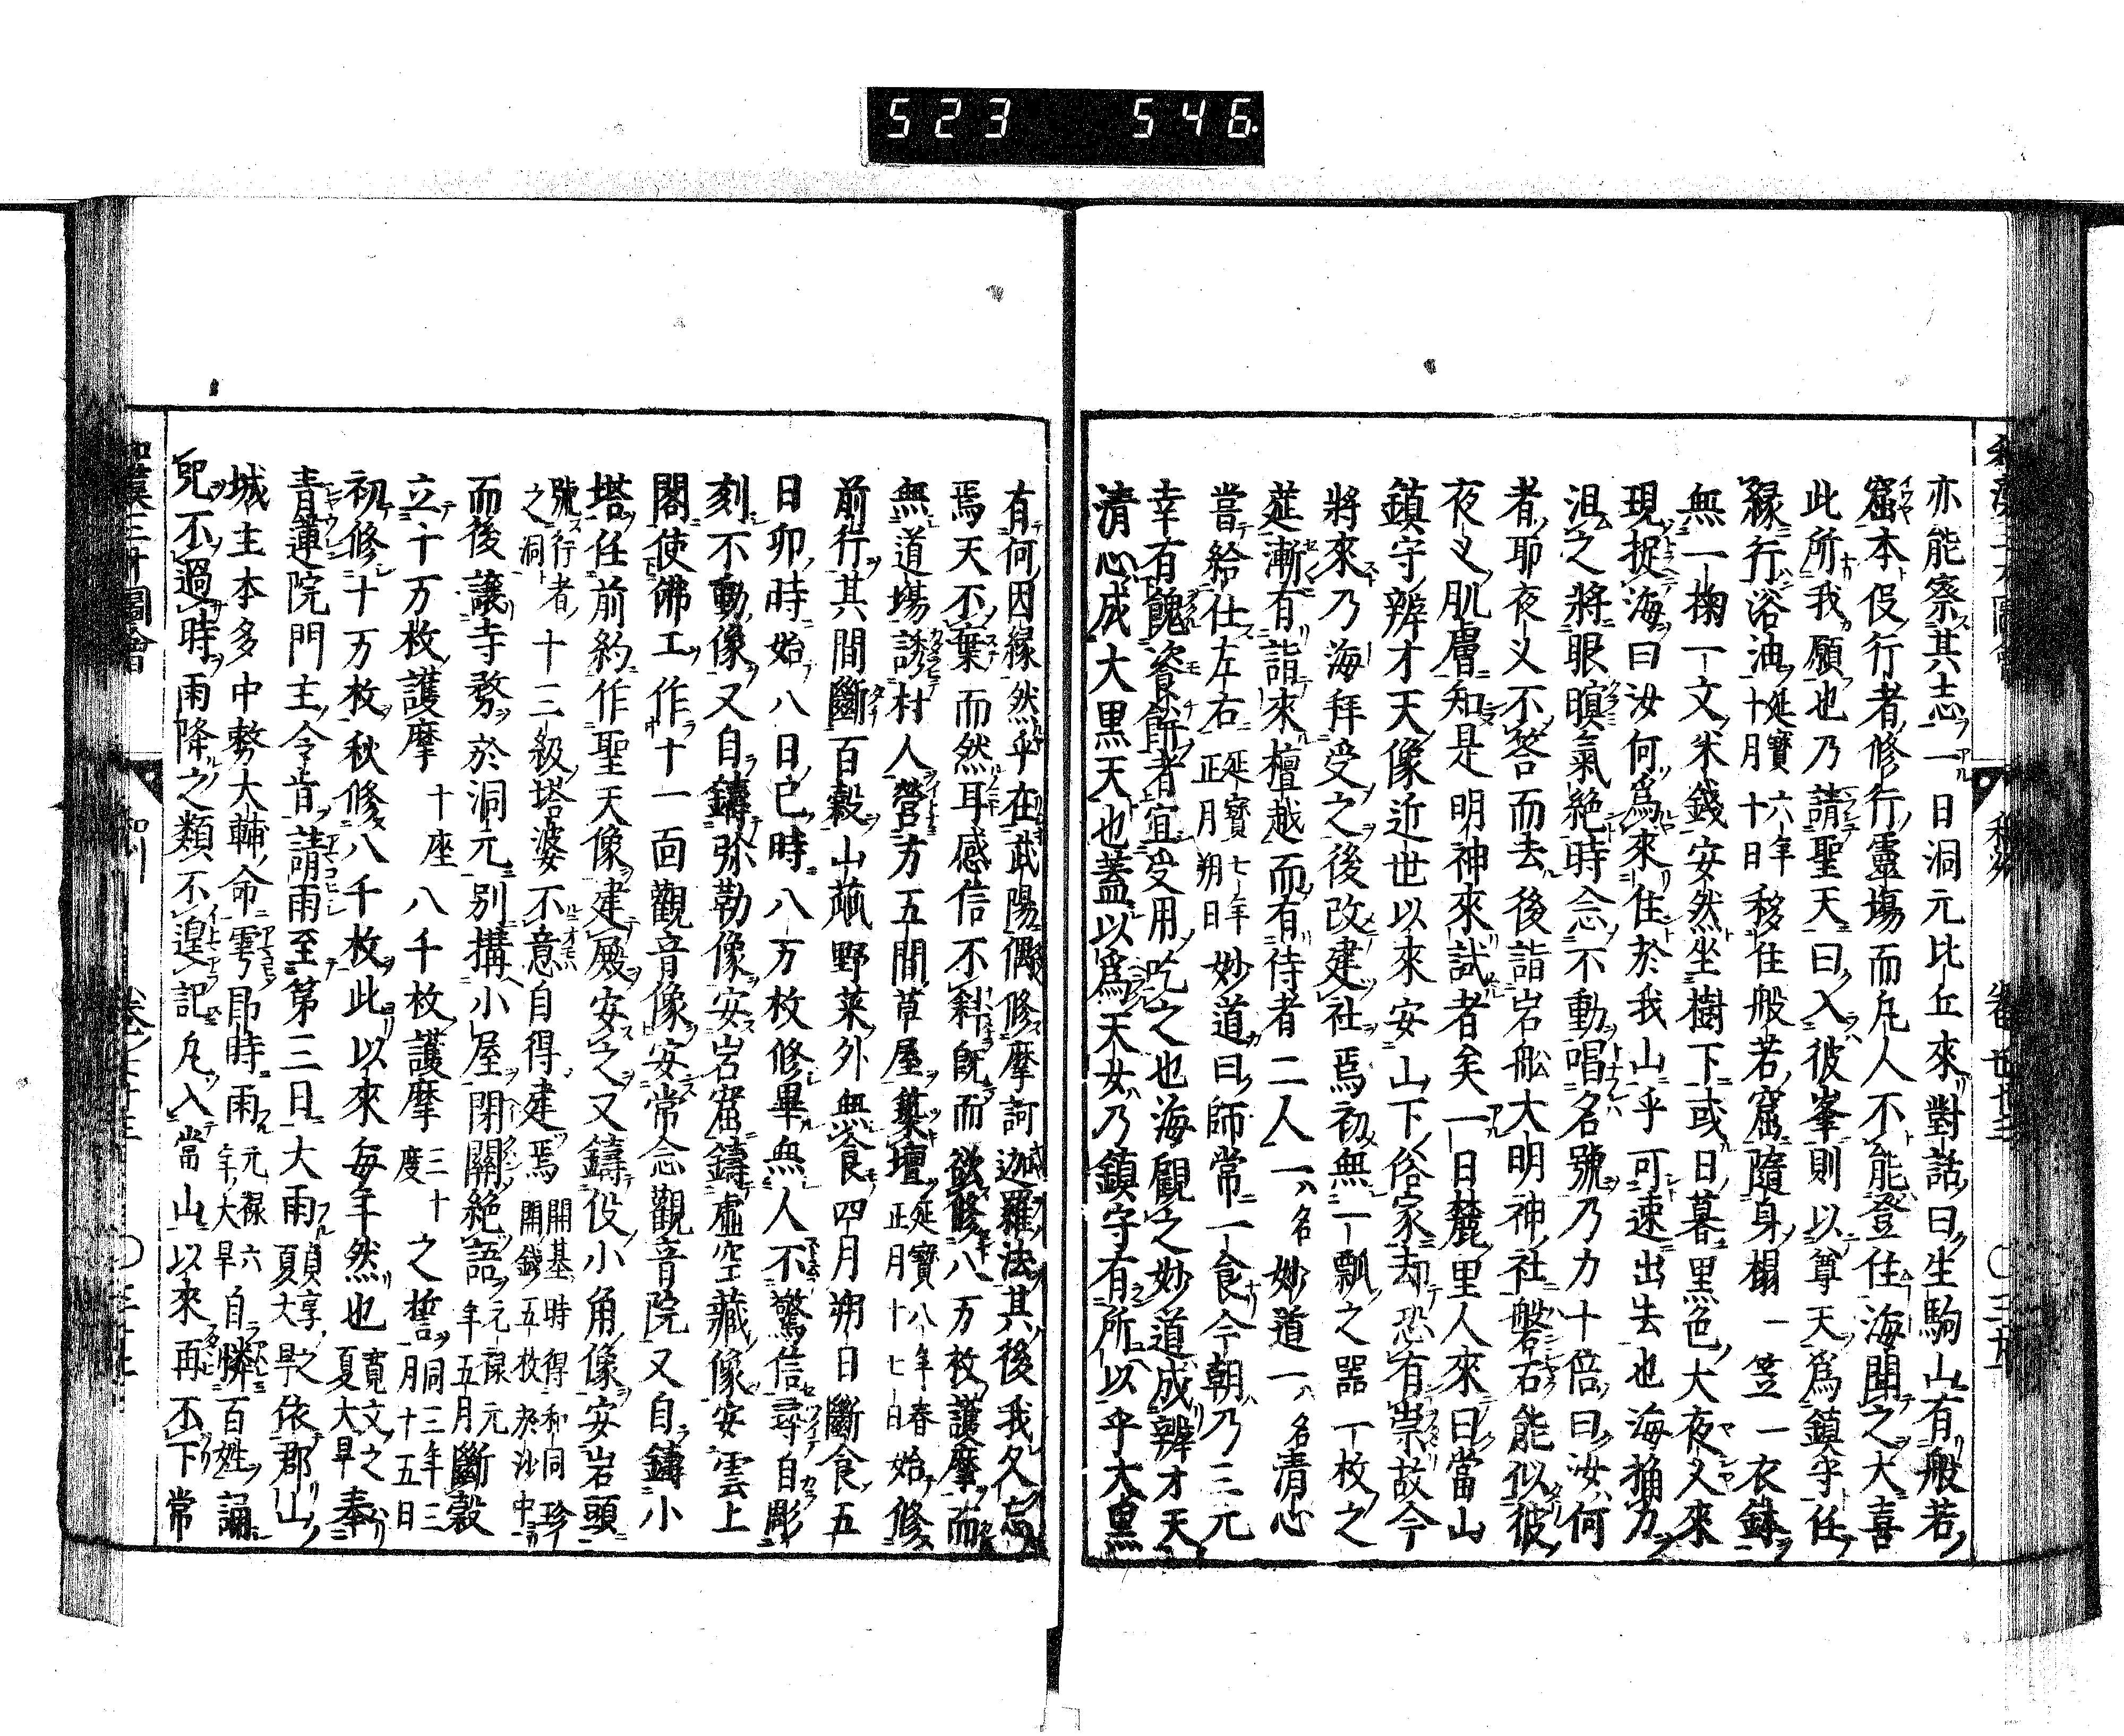 523 546
亦能察其志一日洞元比丘來對話曰生駒山有般若
窟本役行者修行靈場而凡人不能登住海聞之大喜
此所我願也乃請聖天曰入彼峯則以尊天爲鎮乎任
緣行浴油延寶六年十月十日移住般若窟隨身榻一笠一衣鉢
無一掬一文米錢安然坐樹下或日暮黒色大夜叉來
現捉海曰汝何爲來住於我山乎可速出去也海捅力
沮之將眼暝氣絕時念不動唱名號乃力十倍曰汝何
者耶夜叉不答而去後詣岩舩大明神社磐石能似彼
夜叉肌膚知是明神來試者矣一日麓里人來曰當山
鎮守辨才天像近世以來安山下俗家却恐有祟故今
將來乃海拜受之後改建社焉初無一瓢之器一枚之
莚漸有詣來檀越而有待者二人一名妙道一名清心
當給仕左右延寶七年正月朔日妙道曰師常一食今朝乃三元
幸有餽資餠者宜受用吃之也海顧之妙道成辨才天
清心成大黒天也蓋以爲天女乃鎮守有所以乎大黒
有何因緣然乎在武陽偶修摩訶迦羅法其後我久忘
焉天不棄而然耳感信不斜既而欲修八万枚護摩而
無道場誘村人營方五間草屋築壇延寶八年春正月十七日始修
前行其間斷百穀山蔬野菜外無飡四月朔日斷食五
日卯時始八日巳時八万枚修畢無人不驚信尋自彫
刻不動像又自鑄弥勒像安岩窟鑄虛空藏像安雲上
閣使佛工作十一面觀音像安常念觀音院又自鑄小
塔任前約作聖天像建殿安之又鑄役小角像安岩頭
號行者之洞十三級塔婆不意自得建焉開基時得和同珍開錢五枚於沙中
而後讓寺務於洞元別構小屋閉關絕語元禄元年五月斷穀
立十万枚護摩十座八千枚護摩三十度之誓同三年三月十五日
初修十万枚秋修八千枚此以來每年然也寛文之夏大旱奉
青蓮院門主令旨請雨至第三日大雨貞享之夏大旱依郡山
城主本多中務大輔命雩即時雨元禄六年大旱自憐百姓誦
咒不過時雨降之類不遑記凡入當山以來再不下常